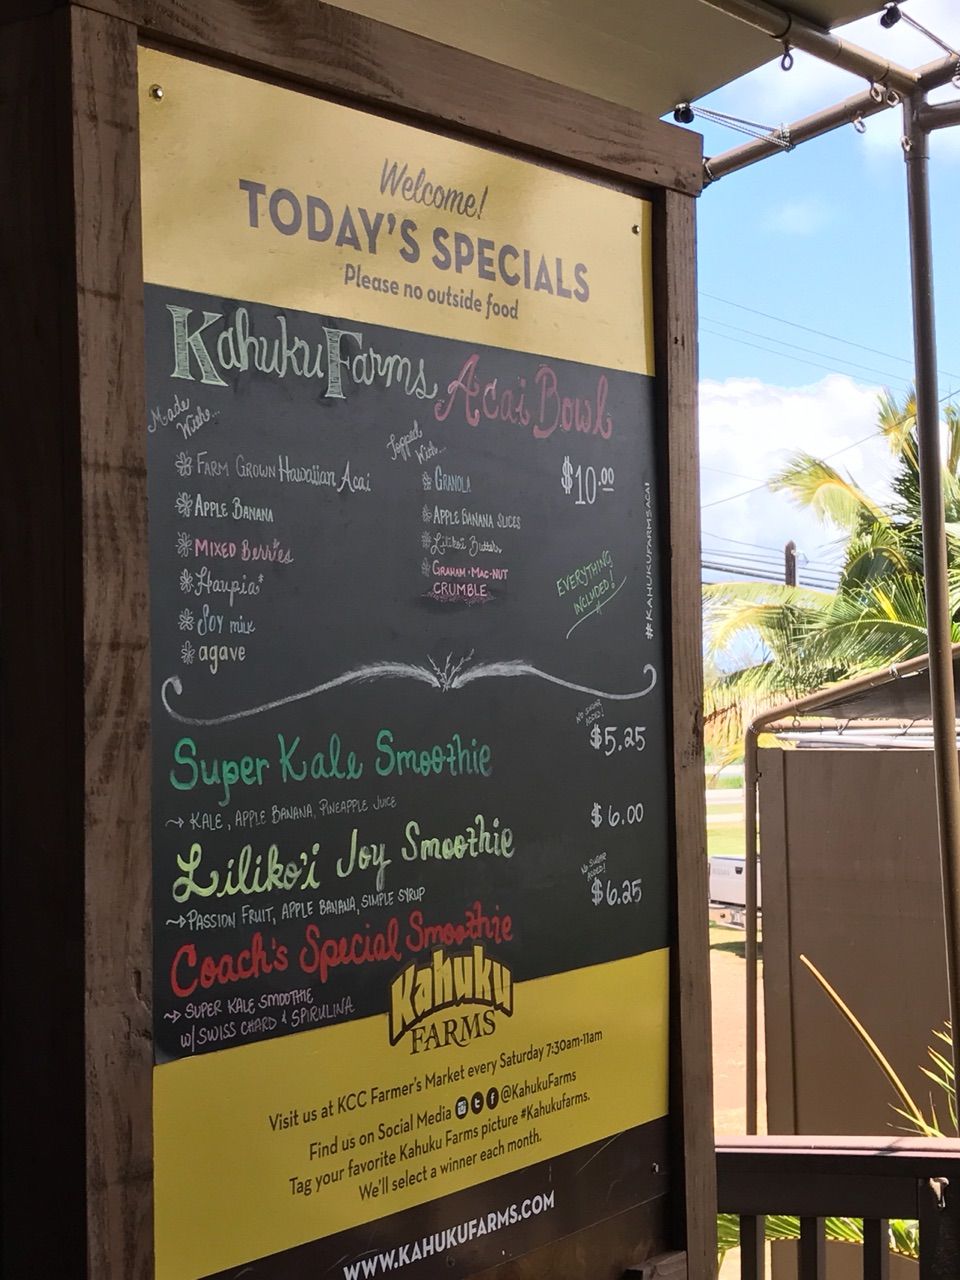 Welcome!
TODAY'S SPECIALS
Please no outside food
Kahuku Farms Acai Bowl
Made With...
Farm Grown Hawaiian Acai
Apple Banana
Mixed Berries
Haupia*
Soy milk
agave
Topped With...
Granola
Apple Banana slices
Liliko'i Butter
Graham • Mac-Nut
Crumble
$10.00
Everything
included!
#KAHUKUFARMSACAI
Super Kale Smoothie
No sugar
added!
$5.25
Kale, Apple Banana, Pineapple Juice
Liliko'i Joy Smoothie
$6.00
Passion Fruit, Apple Banana, Simple Syrup
Coach's Special Smoothie
No sugar
added!
$6.25
Super Kale Smoothie
w/Swiss Chard & Spirulina
Kahuku
FARMS
Visit us at KCC Farmer's Market every Saturday 7:30am-11am
Find us on Social Media @KahukuFarms
Tag your favorite Kahuku Farms picture #Kahukufarms.
We'll select a winner each month.
WWW.KAHUKUFARMS.COM